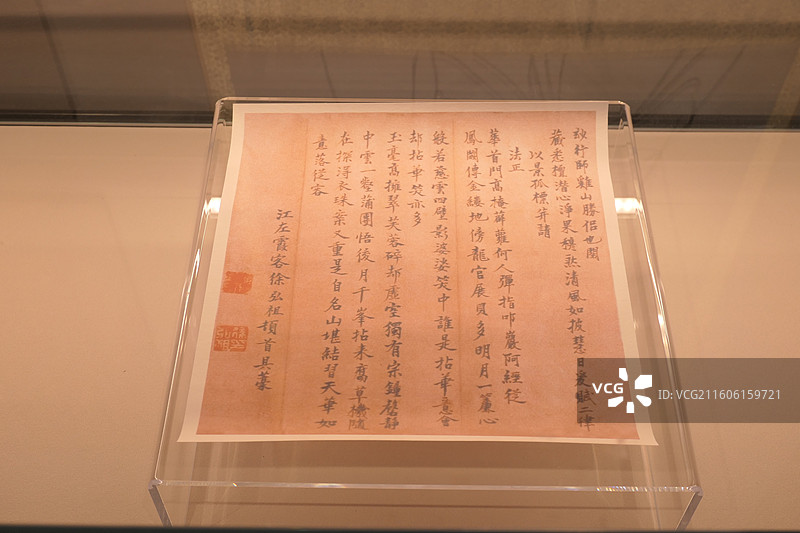 玅行師雞山勝侶也閱
藏悉檀潛心淨果穆然清風如披慧日爰賦二律
以景孤標并請
法正
華首門高掩薜蘿何人彈指叩巖阿經從
鳳闕傳金縷地傍龍宮展貝多明月一簾心
般若慈雲四壁影婆娑笑中誰是拈華意會
却拈華笑亦多
玉毫高擁翠芙蓉碎却虛空獨有宗鐘磬靜
中雲一壑蒲團悟後月千峯拈來腐草機隨
在探得衣珠案又重是自名山堪結習天華如
意落從容
江左霞客徐弘祖頓首具藁
VCG
VCG ID: VCG211606159721